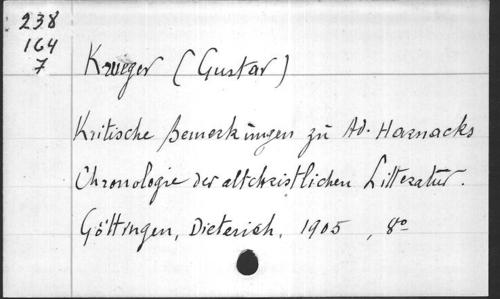 238
164
7
Krueger (Gustav)
Kritische Bemerkungen zu Ad. Harnacks
Chronologie der altchristlichen Litteratur.
Göttingen, Dieterich, 1905, 8º